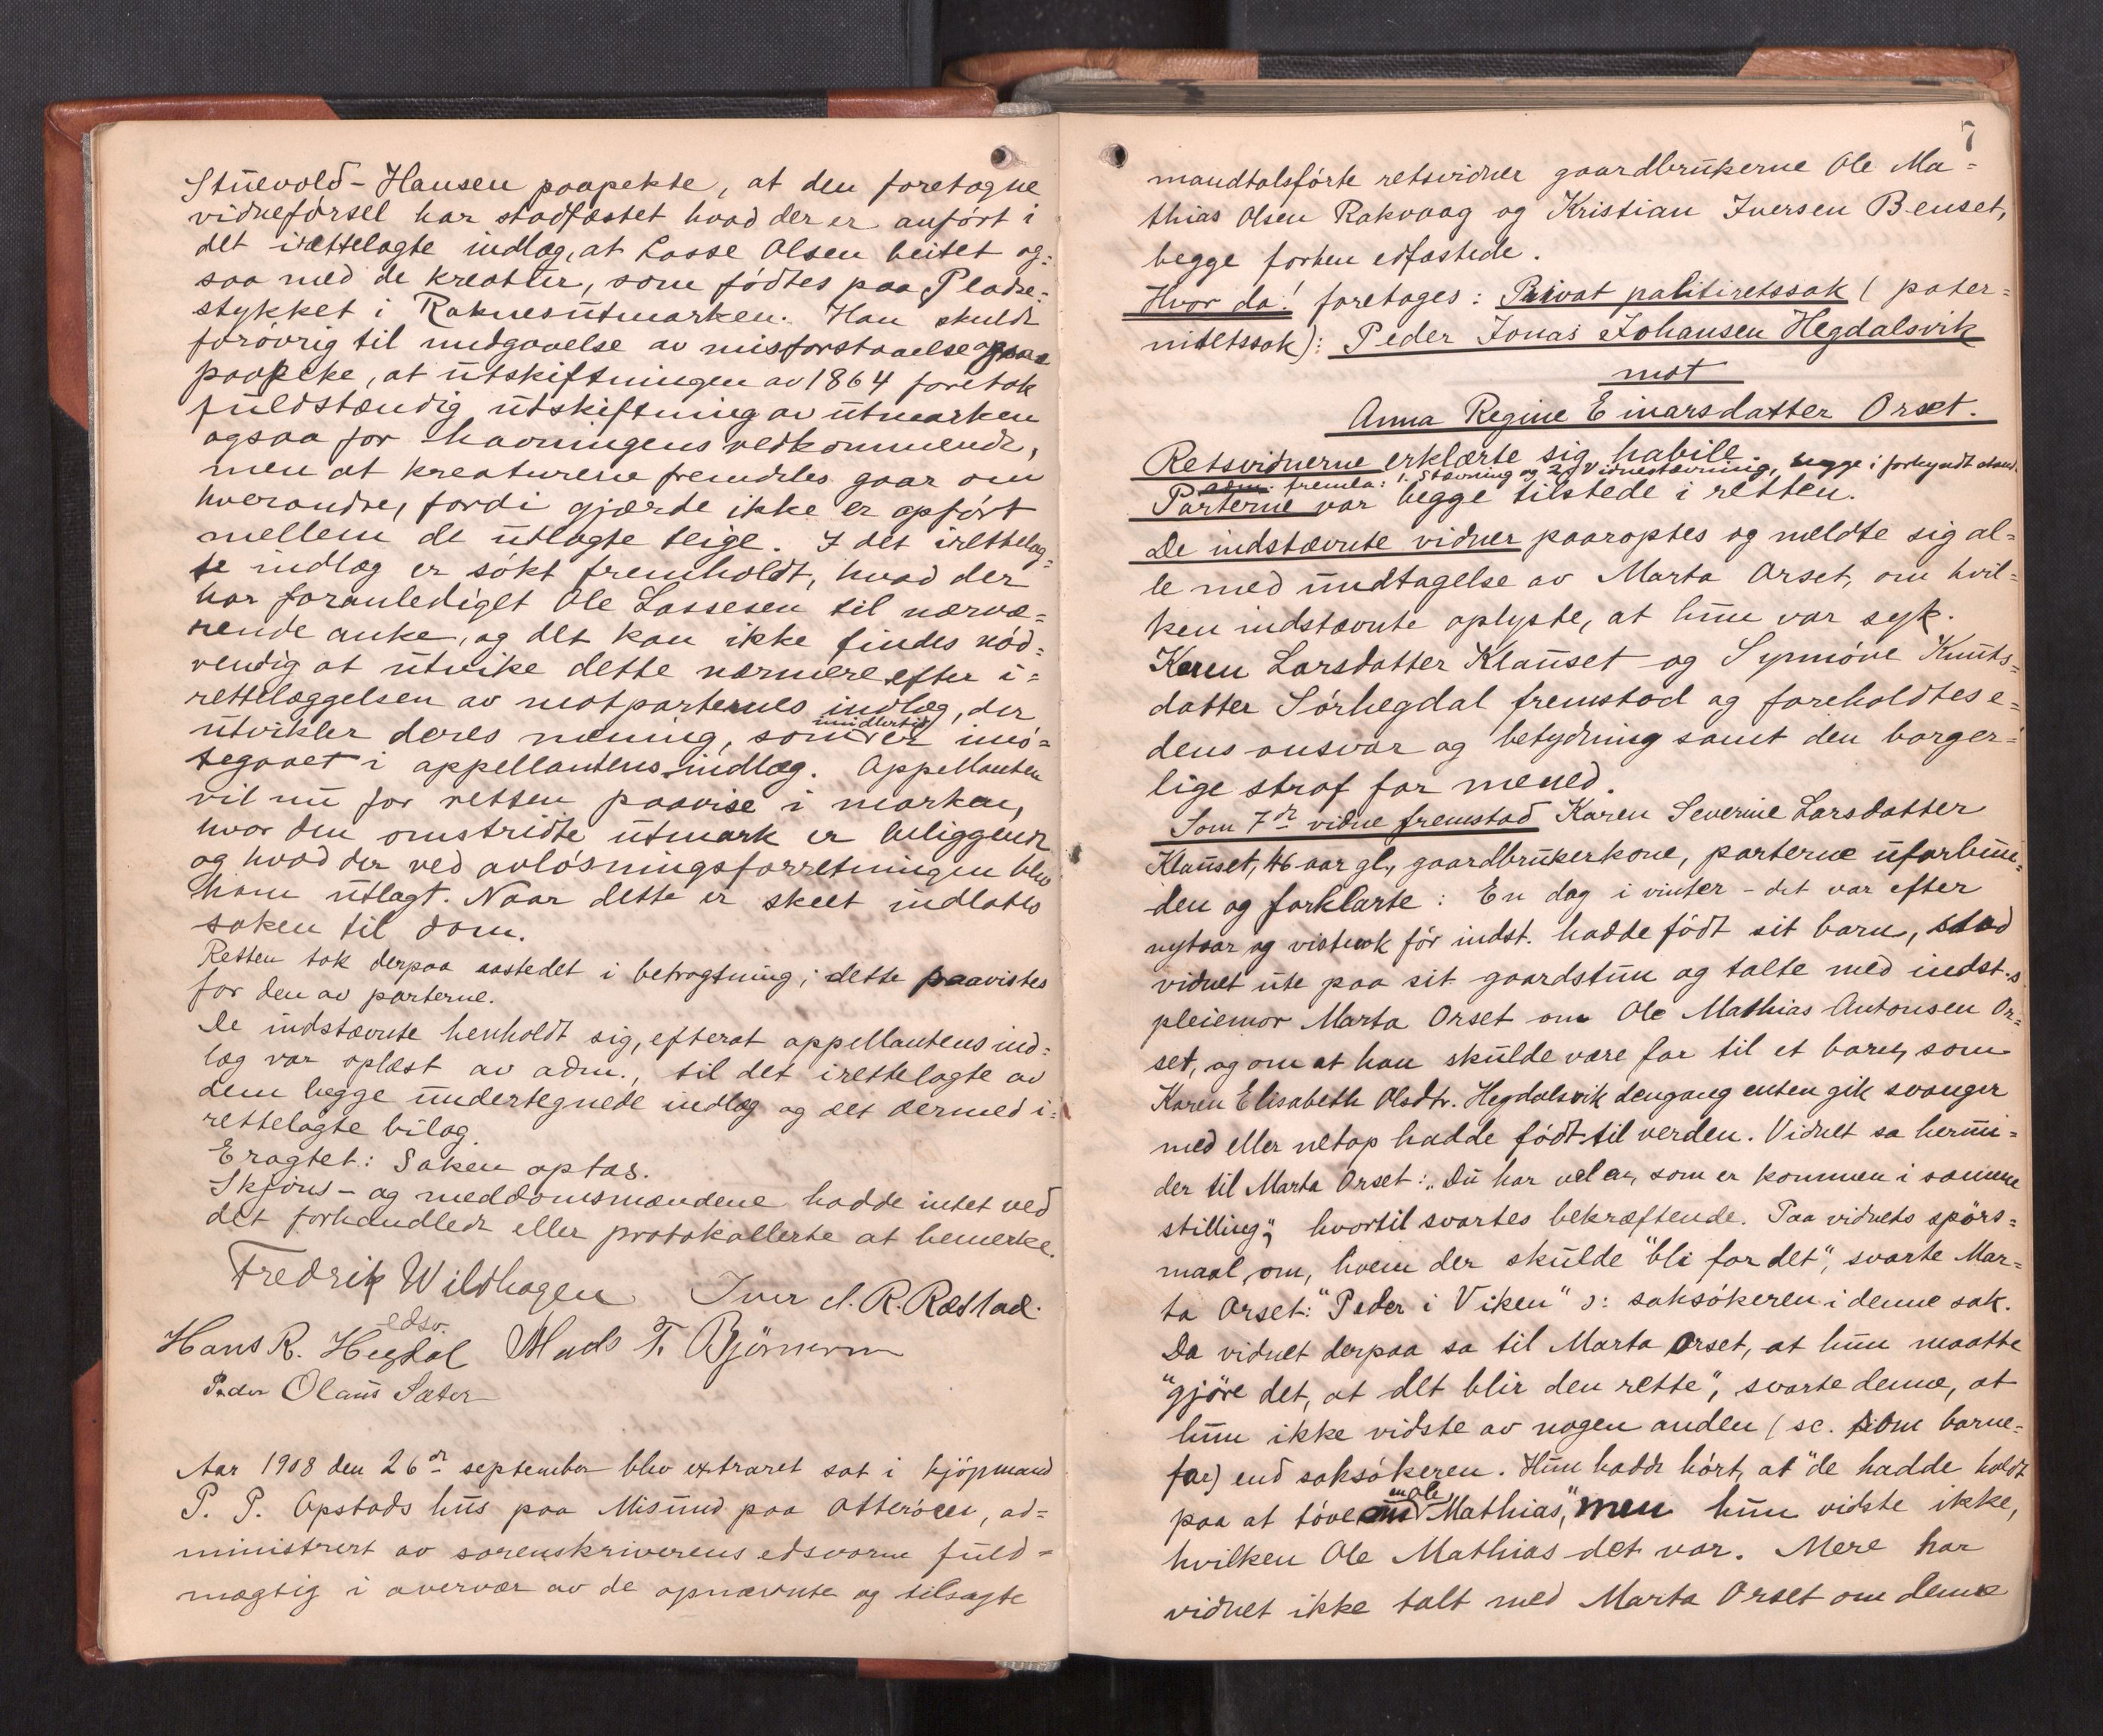 Stuevold-Hansen paapekte, at den foretagne
vidneførsel har stadfæstet hvad der er anført i
det irættelagte indlæg, at Lasse Olsen beitet og=
saa med de kreatur, som fødtes paa Pladse=
stykket i Raknesutmarken. Han skulde
forøvrig til undgaaelse av misforstaaelse
paapeke, at utskiftningen av 1864 foretok
fuldstændig utskiftning av utmarken
ogsaa for havningens vedkommende,
men at kreaturene fremdeles gaar om
hverandre, fordi gjærde ikke er opført
mellem de utlagte teige. I det irettelag=
te indlæg er søkt fremholdt, hvad der
har foranlediget Ole Lassesen til nærvæ=
rende anke, og det kan ikke findes nød=
vendig at utvike dette nærmere efter i=
rettelæggelsen av motparternes indlæg, der
utvikler deres mening, som imidlertid er imø=
tegaaet i appellantens indlæg. Appellanten
vil nu for retten paavise i marken,
hvor den omstridte utmark er beliggende
og hvad der ved avløsningsforretningen blev
ham utlagt. Naar dette er skeet indlates
saken til dom.
Retten tok derpaa aastedet i betragtning; dette paavistes
for den av parterne.
De indstævnte henholdt sig, efterat appellantens ind=
læg var oplæst av adm., til det irettelagte av
dem begge undertegnede indlæg og det dermed i=
rettelagte bilag.
Eragtet: Saken optas.
Skjøns- og meddomsmændene hadde intet ved
det forhandlede eller protokollerte at bemerke.
Fredrik Wildhagen Iver A. R. Ræstad.
edsv.
Hans R. Hegdal Mads T. Bjørnerem
Peder Olaus Sæter
Aar 1908 den 26de september blev extraret sat i kjøpmand
P. P. Opstads hus paa Misund paa Otterøen, ad=
ministrert av sorenskriverens edsvorne fuld=
mægtig i overvær av de opnævnte og tilsagte
7
mandtalsførte retsvidner gaardbrukerne Ole Ma=
thias Olsen Rakvaag og Kristian Iversen Benset,
begge forhen edfæstede.
Hvor da! foretages: Privat politiretssak (pater=
nitetssak): Peder Jonas Johansen Hegdalsvik
mot
Anna Regine Einarsdatter Orset.
Retsvidnerne erklærte sig habile.
adm. fremla: 1. Stævning og 2. Vidnestævning, begge i forkyndt stand.
Parterne var begge tilstede i retten.
De indstævnte vidner paaroptes og meldte sig al=
le med undtagelse av Marta Orset, om hvil=
ken indstævnte oplyste, at hun var syk.
Karen Larsdatter Klauset og Synnøve Knuts=
datter Sørhegdal fremstod og foreholdtes e=
dens ansvar og betydning samt den borger=
lige straf for mened.
Som 7de vidne fremstod Karen Severine Larsdatter
Klauset, 46 aar gl., gaardbrukerkone, parterne uforbun=
den og forklarte: En dag i vinter - det var efter
nytaar og vistnok før indst. hadde født sit barn, stod
vidnet ute paa sit gaardstun og talte med indst.s
pleiemor Marta Orset om Ole Mathias Antonsen Or=
set, og om at han skulde være far til et barn, som
Karen Elisabeth Olsdtr. Hegdalsvik dengang enten gik svanger
med eller netop hadde født til verden. Vidnet sa herun=
der til Marta Orset: „Du har vel en, som er kommen i samme
stilling"; hvortil svartes bekræftende. Paa vidnets spørs=
maal om, hvem der skulde "bli far det", svarte Mar=
ta Orset: "Peder i Viken" ɔ: saksøkeren i denne sak.
Da vidnet derpaa sa til Marta Orset, at hun maatte
"gjøre det, at det blir den rette", svarte denne, at
hun ikke vidste av nogen anden (sc. som barne=
far) end saksøkeren. Hun hadde hørt, at "de hadde holdt
paa at tøve om en Ole Mathias," men hun vidste ikke,
hvilken Ole Mathias det var. Mere har
vidnet ikke talt med Marta Orset om denne